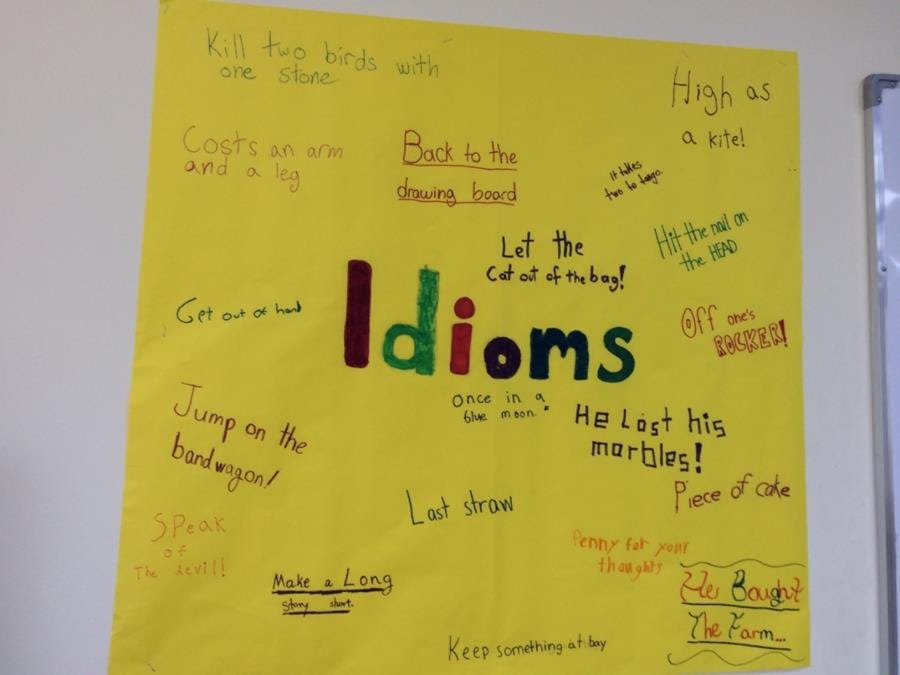 Kill two birds with
one stone
High as
a kite!
Costs an arm
and a leg
Back to the
drawing board
It takes
two to tango.
Let the
Cat out of the bag!
Hit the nail on
the HEAD
Get out of hand
Idioms
Off one's
ROCKER!
Once in a
blue moon.
He Lost his
marbles!
Jump on the
bandwagon!
Last straw
Piece of cake
Speak
of
The devil!
Penny for your
thoughts
Make a Long
Story short.
Bought
The Farm...
Keep something at bay